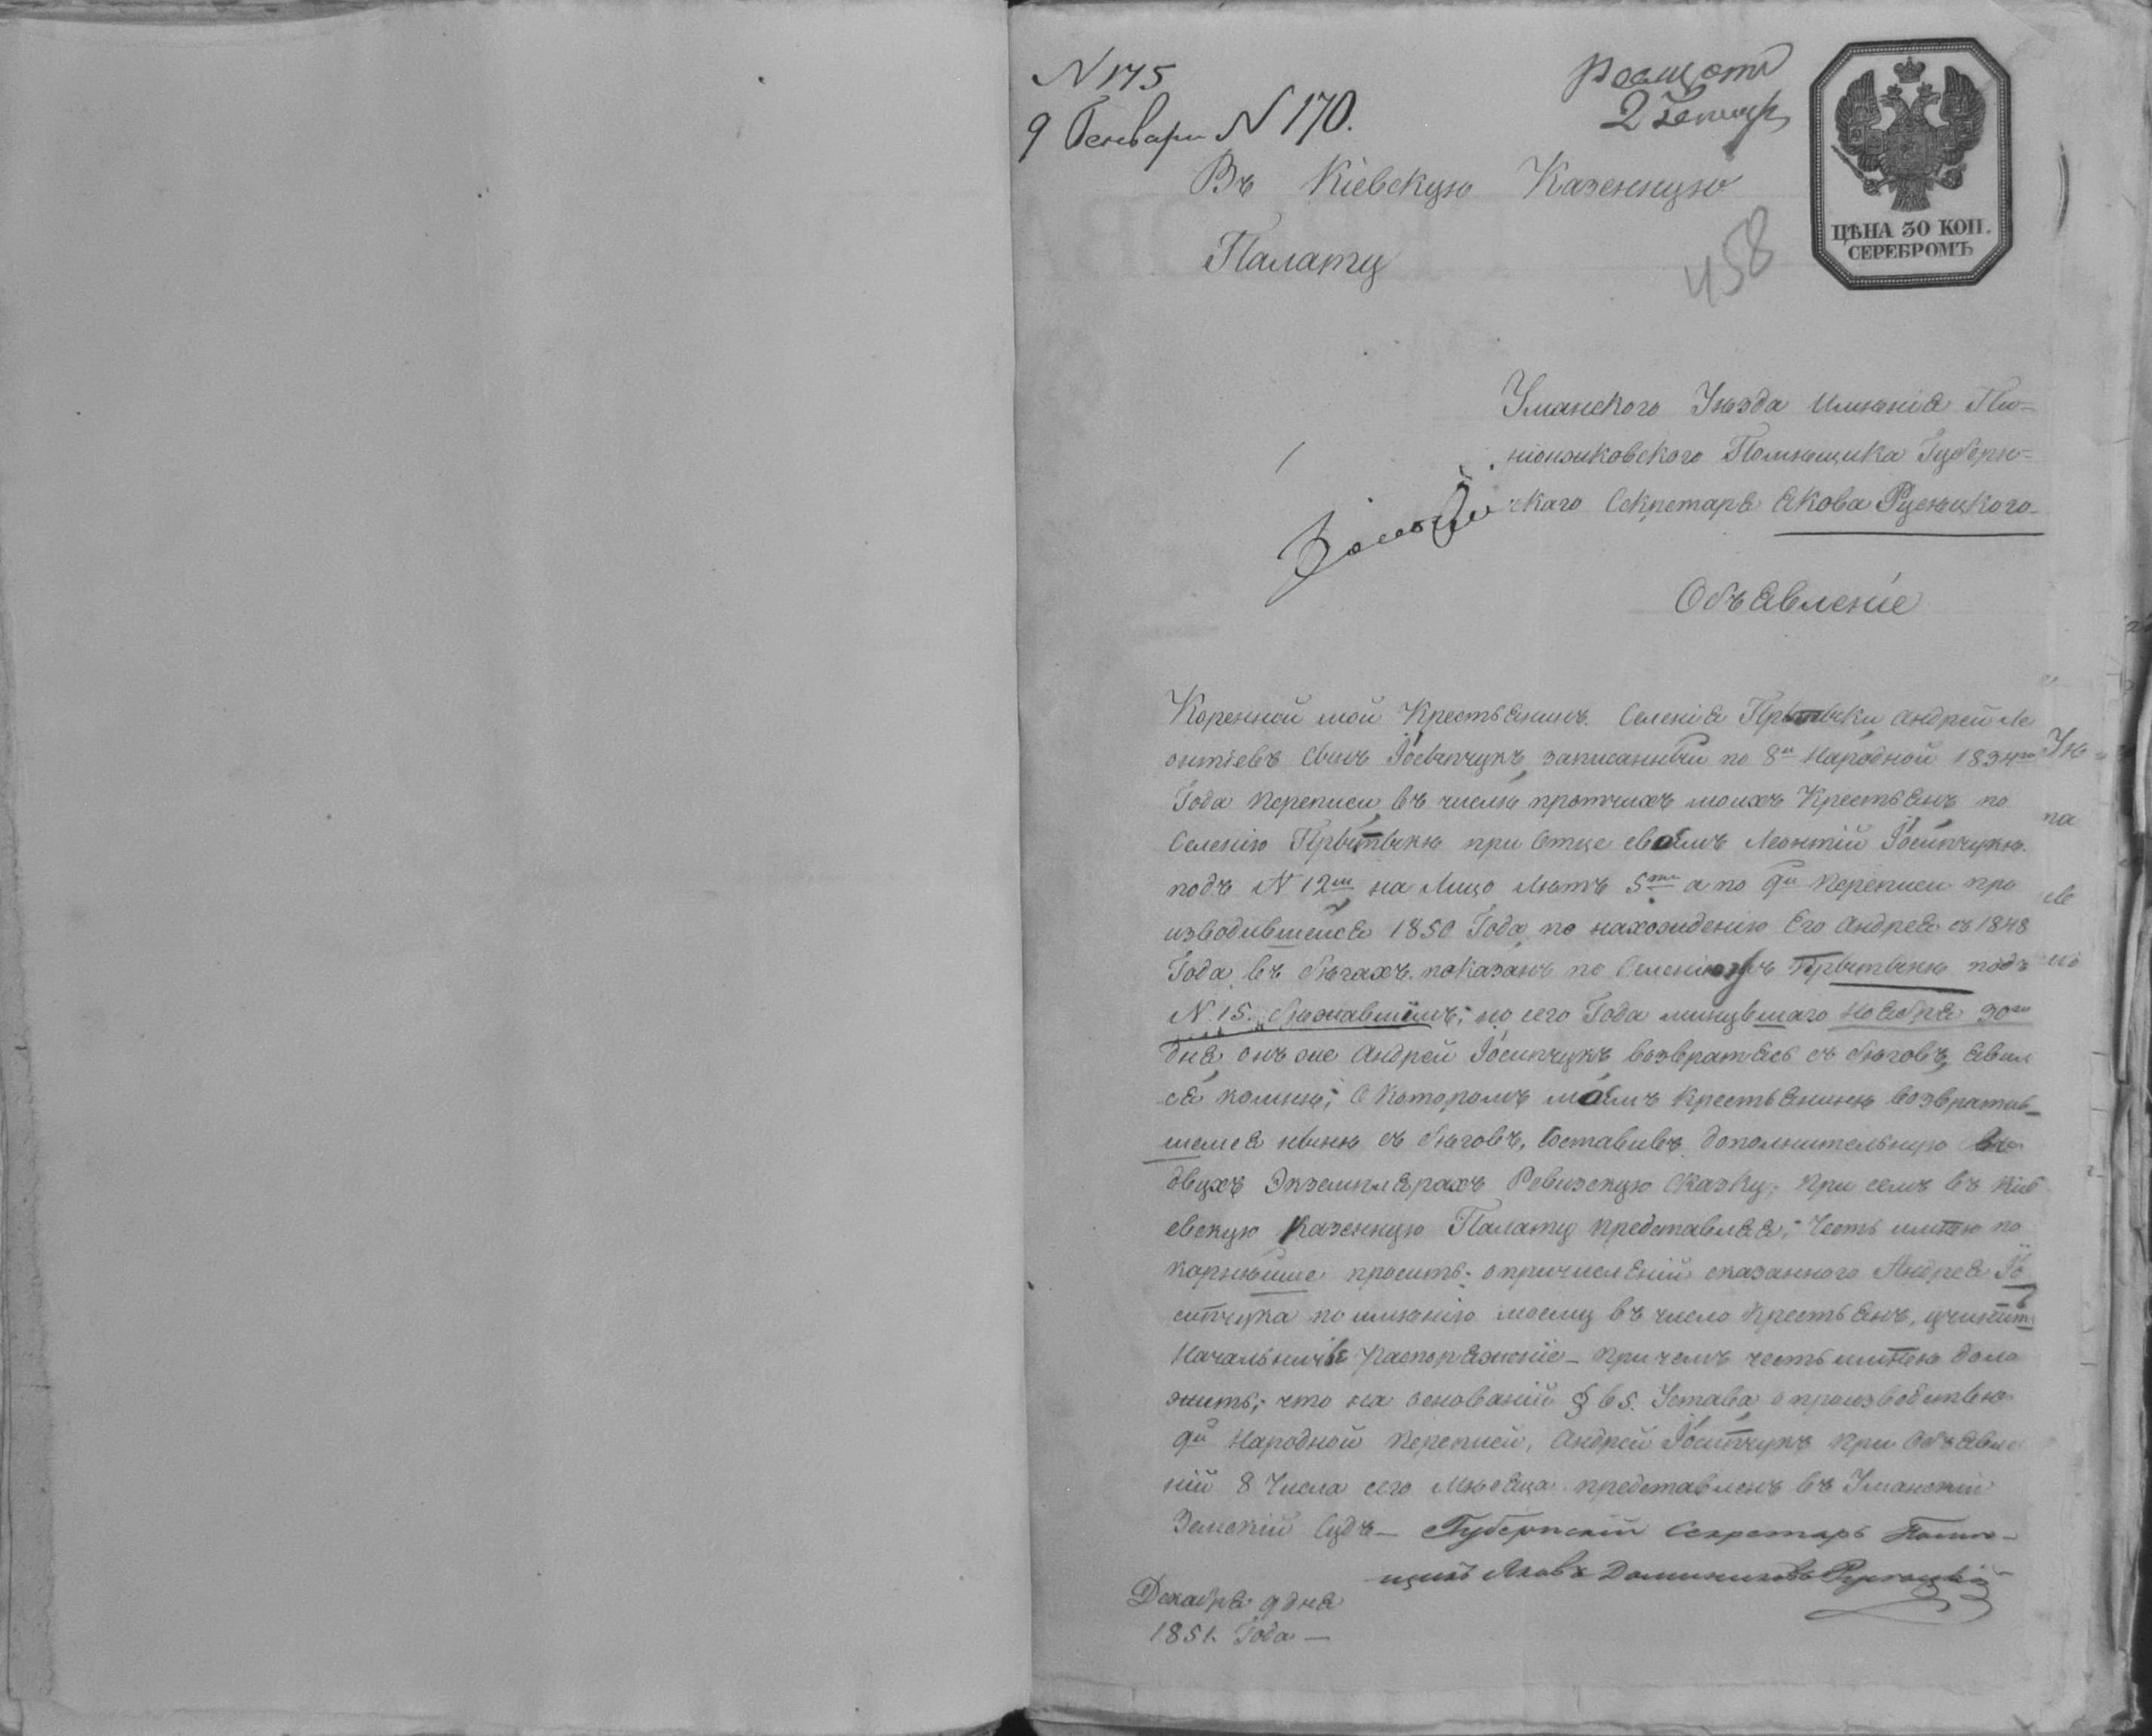 N 175
9 Генваря N 170.
2
ЦѢНА 30 КОП.
СЕРЕБРОМЪ
Въ Кіевскую Казенную
Палату
458
Уманского Уѣзда Имѣнія Пи-
ніонжковского Помѣщика Губерн-
скаго Секретаря Якова
Объявленіе
Коренной мой Крестьянинъ Селенія Андрей Ле
онтіевъ Сынъ записанный по 8й Народной 1834го
Года Переписи, въ числѣ протчихъ моихъ Крестьянъ по
Селенію при Отце своемъ Леонтій
подъ N 12м на Лицо Лѣтъ 5ти а по 9й Переписи про
изводившейся 1850 Года, по нахожденію Его Андрея съ 1848
Года въ бѣгахъ показанъ по Селенію подъ
N. 15. бѣжавшимъ; но сего Года минувшаго Ноября 30го
дня, онъ же Андрей возвратясь съ бѣговъ, явил
ся комнѣ; О Которомъ моемъ Крестьянинѣ возвратив-
шемся нынѣ съ бѣговъ, Составивъ дополнительную
двухъ Экземплярахъ Ревизскую Сказку; При семъ въ Кіе
евскую Казенную Палату представляя; Честь имѣю по
корнѣише просить; опричисленій сказанного Андрея
по имѣнію моему въ число Крестьянъ, учинить
Распоряженіе – Причемъ честь имѣю доло
жить; что на основаній § 65. Устава о производствѣ
9й Народной Переписи, Андрей при Объявле
ній 8 Числа сего Мѣсяца представленъ въ Уманский
Земскій Судъ – Губернскій Секретарь Помѣ-
щикъ Яковъ
Декабря 9 дня
1851. Года –